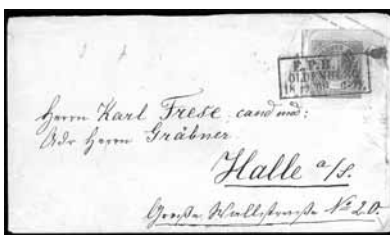 E.P.B.
OLDENBURG
18
Herrn Karl Frese cand med:
Adr Herrn Gräbner
Halle a/S.
Große Wallstraße No 20.